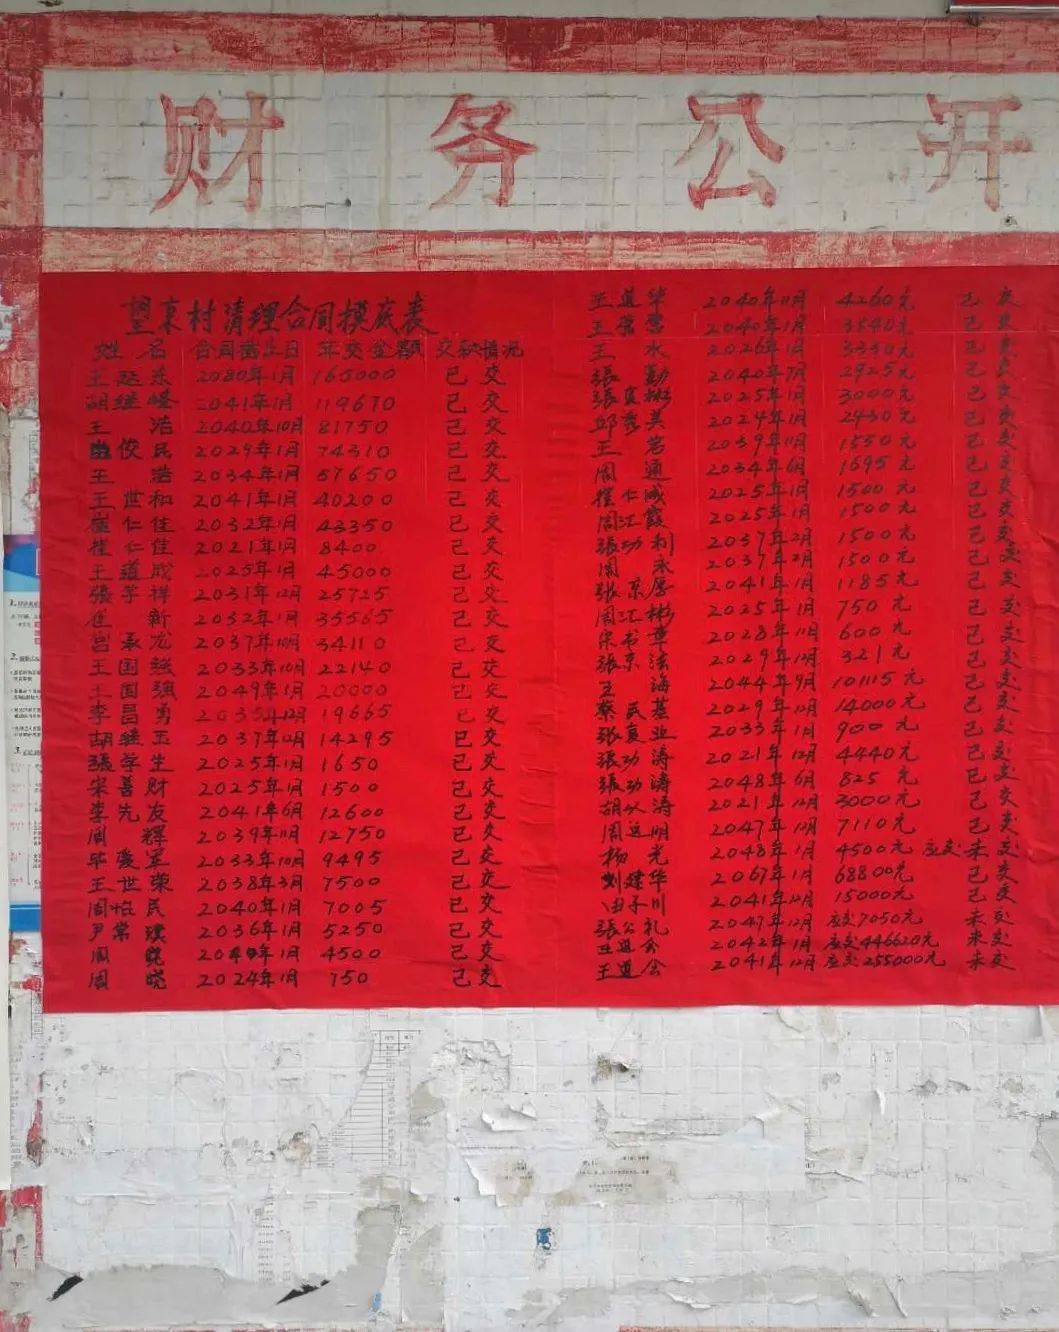 财务公开
望东村清理合同摸底表
姓名 合同截止日 年交金额 交款情况
王延乐 2080年1月 165000 已交
胡继峰 2041年1月 119670 已交
王浩 2040年10月 81750 已交
俊民 2029年1月 74310 已交
王浩 2034年1月 57650 已交
王世和 2041年1月 40200 已交
崔仁佳 2032年1月 43350 已交
崔仁佳 2021年1月 8400 已交
王道成 2025年1月 45000 已交
張学祥 2031年12月 25725 已交
崔新 2032年1月 35565 已交
宫承龙 2037年10月 34110 已交
王国 2033年10月 22140 已交
王国强 2049年1月 20000 已交
李昌勇 2035年12月 19665 已交
胡继玉 2037年12月 14295 已交
張学生 2025年1月 1650 已交
宋善财 2025年1月 1500 已交
李先友 2041年6月 12600 已交
周辉 2039年11月 12750 已交
毕慶军 2033年10月 9495 已交
王世荣 2038年3月 7500 已交
周怡民 2040年1月 7005 已交
尹常璞 2036年1月 5250 已交
周晓 年1月 4500 已交
周晓 2024年1月 750 已交
王道华 2040年11月 4260元 已交
王常 2040年1月 3540元 已交
王水 2026年1月 3330元 已交
張勤 2040年7月 2925元 已交
張彬 2025年1月 3000元 已交
邱秀美 2024年1月 2430元 已交
王岩 2039年11月 1550元 已交
周通 2034年6月 1695元 已交
崔仁成 2025年1月 1500元 已交
周江霞 2025年1月 1500元 已交
張功利 2037年2月 1500元 已交
周永 2037年2月 1500元 已交
张京厚 2041年1月 1185元 已交
周江彬 2025年1月 750元 已交
宋书章 2028年10月 600元 已交
張京法 2029年12月 321元 已交
王海 2044年9月 10115元 已交
蔡民基 2029年10月 14000元 已交
張业 2033年1月 900元 已交
張功涛 2021年12月 4440元 已交
張功涛 2048年6月 825元 已交
胡以涛 2021年12月 3000元 已交
周运明 2047年12月 7110元 已交
杨光 2048年1月 4500元 应交未交
刘建华 2067年1月 68800元 已交
由子川 2041年12月 15000元 已交
張公礼 2047年12月 应交7050元 未交
王道会 2042年1月 应交446620元 未交
王道会 2041年12月 应交255000元 未交